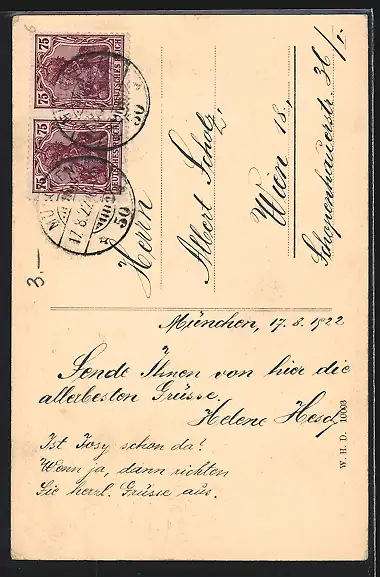 75
DEUTSCHES REICH
75
DEUTSCHES REICH
50
17.8.22
50
3.—
Herrn
Albert Scholz,
Wien 18.,
Schopenhauerstr. 36/1.
München, 17.8.1922
Sende Ihnen von hier die
allerbesten Grüsse.
Helene Hesch
Ist Josy schon da?
Wenn ja, dann richten
Sie herzl. Grüsse aus.
W. H. D. 10003